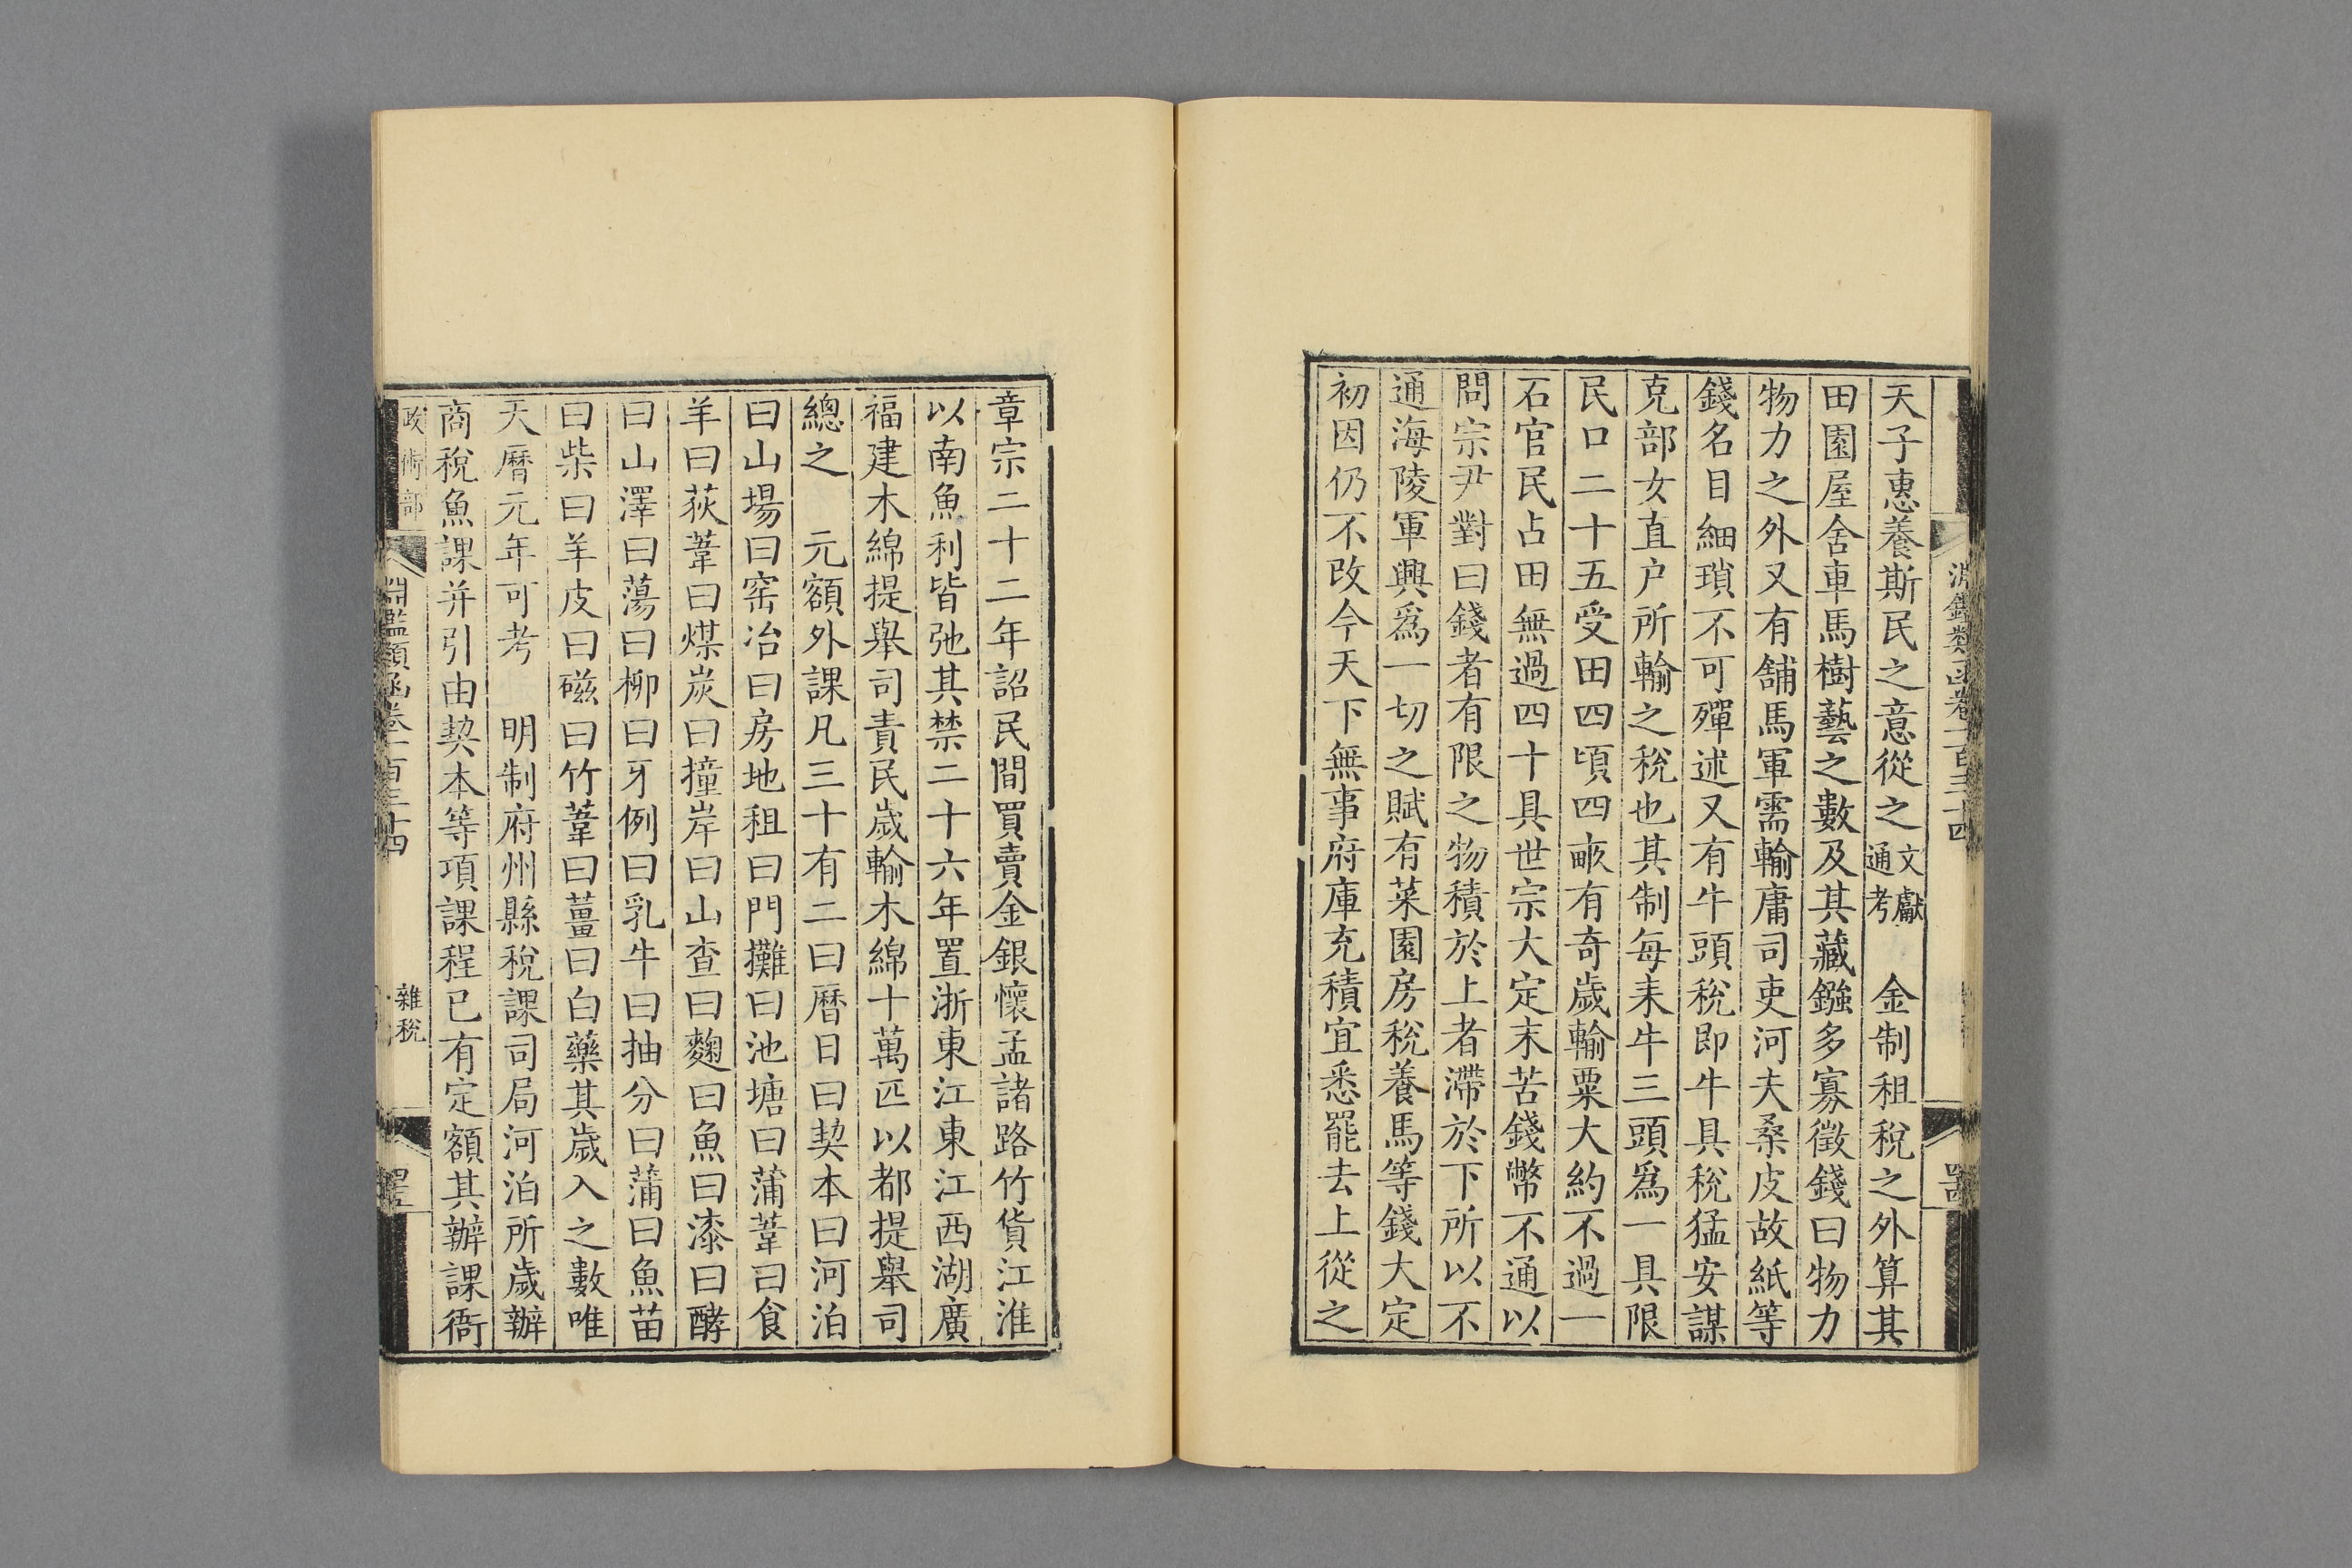 淵鑑類函卷一百三十四
天子惠養斯民之意從之文獻通考　金制租稅之外算其
田園屋舍車馬樹藝之數及其藏鏹多寡徵錢曰物力
物力之外又有舖馬軍需輸庸司吏河夫桑皮故紙等
錢名目細瑣不可殫述又有牛頭稅即牛具稅猛安謀
克部女直户所輸之稅也其制每耒牛三頭爲一具限
民口二十五受田四頃四畝有奇歲輸粟大約不過一
石官民占田無過四十具世宗大定末苦錢幣不通以
問宗尹對曰錢者有限之物積於上者滯於下所以不
通海陵軍興爲一切之賦有菜園房稅養馬等錢大定
初因仍不改今天下無事府庫充積宜悉罷去上從之
章宗二十二年詔民間買賣金銀懷孟諸路竹貨江淮
以南魚利皆弛其禁二十六年置浙東江東江西湖廣
福建木綿提舉司責民歲輸木綿十萬匹以都提舉司
總之　元額外課凡三十有二曰曆日曰契本曰河泊
曰山場曰窑冶曰房地租曰門攤曰池塘曰蒲葦曰食
羊曰荻葦曰煤炭曰撞岸曰山查曰麴曰魚曰漆曰酵
曰山澤曰蕩曰柳曰牙例曰乳牛曰抽分曰蒲曰魚苗
曰柴曰羊皮曰磁曰竹葦曰薑曰白藥其歲入之數唯
天曆元年可考　明制府州縣稅課司局河泊所歲辦
商稅魚課并引由契本等項課程已有定額其辦課衙
政術部　淵鑑類函卷一百三十四　雜稅